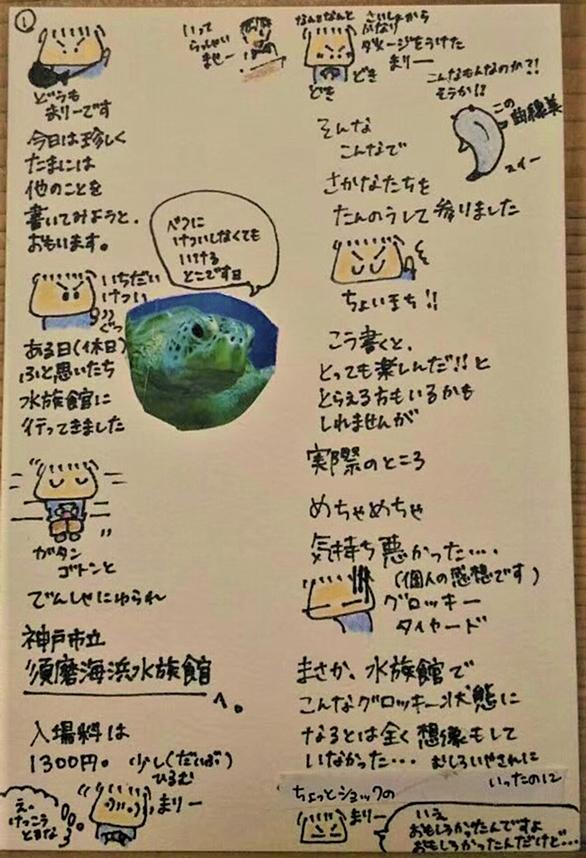 ①
どうも
まりーです
今日は珍しく
たまには
他のことを
書いてみようと、
おもいます。
いちだい
けつい
ぐっ
べつに
けついしなくても
いける
とこです日
ある日(休日)
ふと思いたち
水族館に
行ってきました
ガタン
ゴトンと
でんしゃにゆられ
神戸市立
須磨海浜水族館
へ。
入場料は
1300円。少し(だいぶ)
ひるむ
え、
けっこう
とるな
まりー
いって
らっしゃい
ませー
なんだなんと
さいしょから
かなり
ダメージをうけた
まりー
どき
どき
こんなもんなのか?!
そうか!!
この
曲線美
スイー
そんな
こんなで
さかなたちを
たんのうして参りました
ちょいまち!!
こう書くと、
とっても楽しんだ!!と
とらえる方もいるかも
しれませんが
実際のところ
めちゃめちゃ
気持ち悪かった…
(個人の感想です)
グロッキー
タイヤード
まさか、水族館で
こんなグロッキー状態に
なるとは全く想像もして
いなかった… おしろいやされに
いったのに
ちょっとショックの
まりー
いえ
おもしろかったんですよ
おもしろかったんだけど…